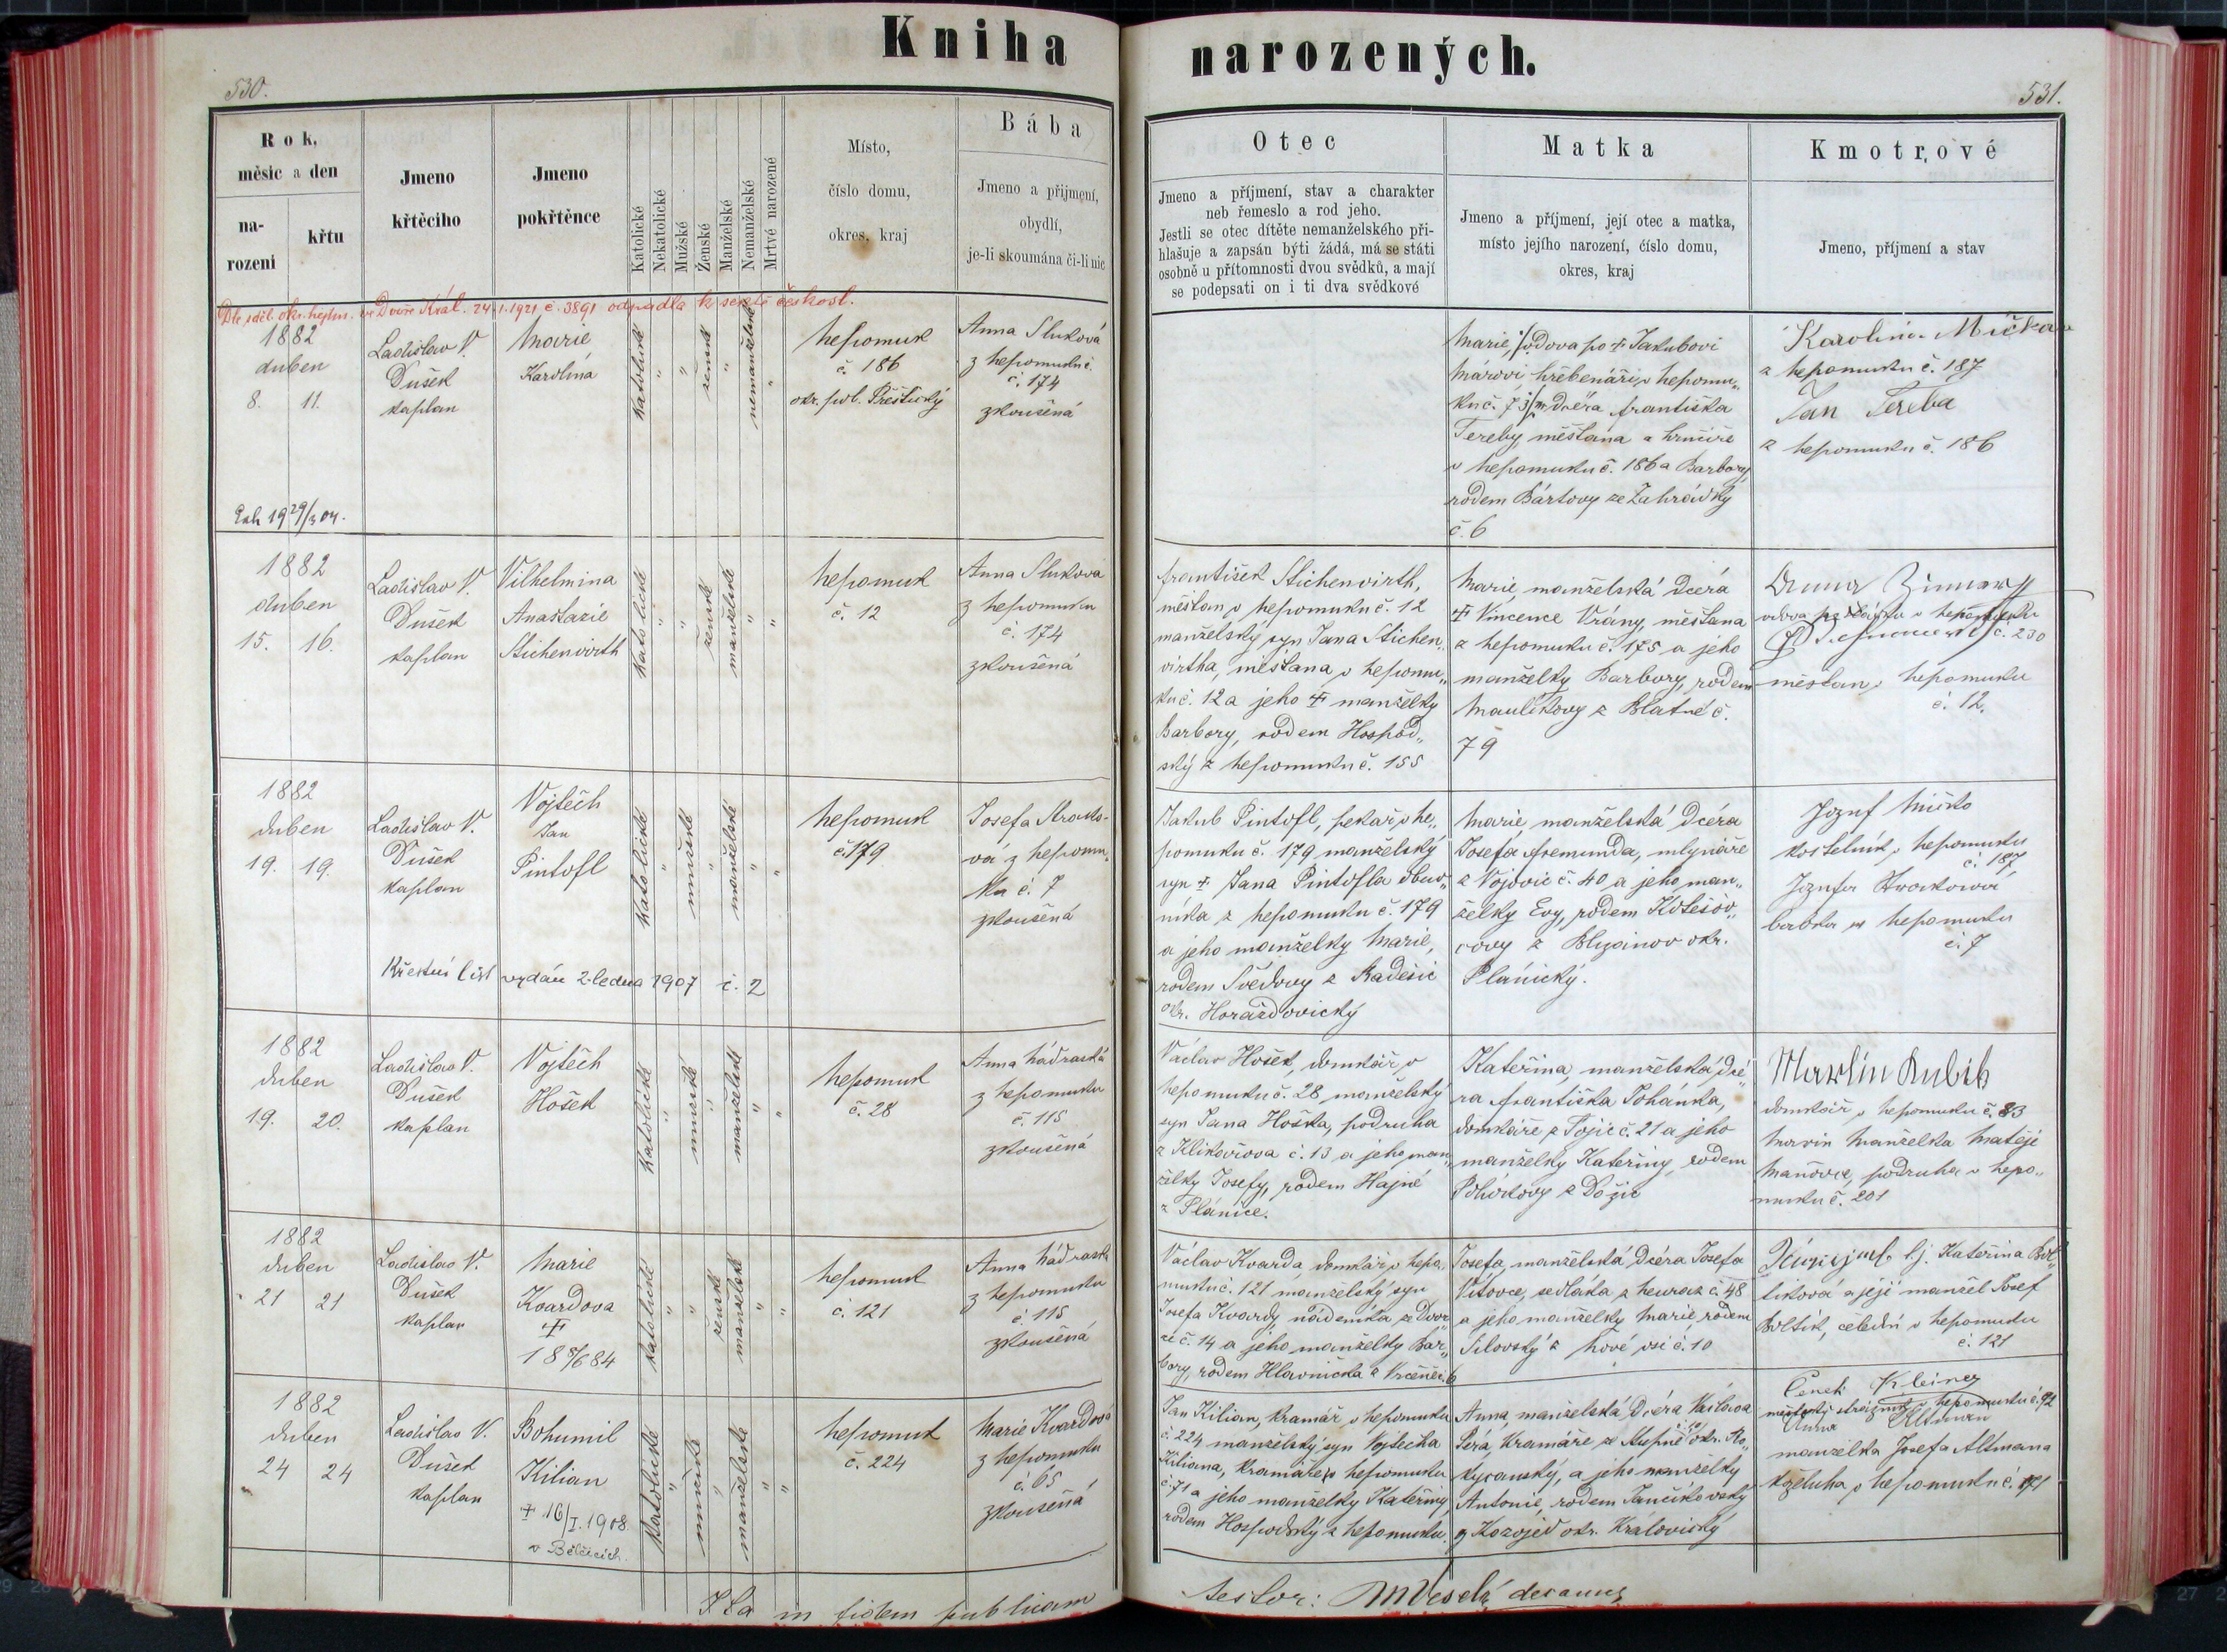 Kniha
530.
Rok,
měsíc a den
na-
rození
křtu
Jmeno
křtěcího
Jmeno
pokřtěnce
Katolické
Nekatolické
Mužské
Ženské
Manželské
Nemanželské
Mrtvé narozené
Místo,
číslo domu,
okres, kraj
Bába
Jmeno a přijmení,
obydlí,
je-li skoumána či-li nic
Dle sděl. okr. hejtm. ve Dvoře Král. 24.1.1921 č. 3891 odpadla k sektě českosl.
1882
duben
8. 11.
Ladislav V.
Dušek
kaplan
Marie
Karolina
katolické
ženské
nemanželské
Nepomuk
č. 186
okr. pol. Přeštický
Anna Sluková
z Nepomuku č.
č. 174
zkoušená
1882
duben
15. 16.
Ladislav V.
Dušek
kaplan
Vilhelmina
Anastazie
Stichenwirth
katolické
ženské
manželské
Nepomuk
č. 12
Anna Sluková
z Nepomuku
č. 174
zkoušená
1882
duben
19. 19.
Ladislav V.
Dušek
kaplan
Vojtěch
Jan
Pintofl
katolické
mužské
manželské
Nepomuk
č. 179
Josefa
vá z Nepomu„
ku č. 7
zkoušená
Křestní list vydán 2. ledna 1907 č. 2
1882
duben
19. 20.
Ladislav V.
Dušek
kaplan
Vojtěch
Hošek
katolické
mužské
manželské
Nepomuk
č. 28
Anna Nádraská
z Nepomuku
č. 115
zkoušená
1882
duben
21 21
Ladislav V.
Dušek
kaplan
Marie
Kvardova
katolické
ženské
manželské
Nepomuk
č. 121
Anna Nádraská
z Nepomuku
č. 115
zkoušená
1882
duben
24 24
Ladislav V.
Dušek
kaplan
Bohumil
Kilian
† 16/I. 1908
v Bělčicích.
katolické
mužské
manželské
Nepomuk
č. 224
Marie Kvardová
z Nepomuku
č. 65
zkoušená
Ita in fidem publicam
narozených.
531.
Otec
Jmeno a příjmení, stav a charakter
neb řemeslo a rod jeho.
Jestli se otec dítěte nemanželského při-
hlašuje a zapsán býti žádá, má se státi
osobně u přítomnosti dvou svědků, a mají
se podepsati on i ti dva svědkové
Matka
Jmeno a příjmení, její otec a matka,
místo jejího narození, číslo domu,
okres, kraj
Kmotrové
Jmeno, příjmení a stav
Marie, vdova po † Jakubovi
hřebenáři v Nepomu„
ku č. 73 dcéra Františka
Tereby měšťana a hrnčíře
v Nepomuku č. 186 a Barbory
rodem Bártovy ze Zahrádky
č. 6
Karolina
z Nepomuku č. 187
Jan Tereba
z Nepomuku č. 186
František Stichenwirth,
měšťan v Nepomuku č. 12
manželský syn Jana Stichen„
wirtha, měšťana v Nepomu„
ku č. 12 a jeho † manželky
Barbory, rodem Hospod„
ský z Nepomuku č. 155
Marie, manželská dcéra
† Vincence Vrány, měšťana
z Nepomuku č. 175 a jeho
manželky Barbory, rodem
Maulikovy z Blatné č.
79
Anna
č. 230
měšťan v Nepomuku
č. 12.
Jakub Pintofl, pekař v Ne„
pomuku č. 179 manželský
syn † Jana Pintofla obuv„
níka z Nepomuku č. 179
a jeho manželky Marie,
rodem Švédovy z Kadešic
okr. Horažďovický
Marie, manželská dcéra
Josefa mlynáře
z Vojovic č. 40 a jeho man„
želky Evy, rodem
covy z okr.
Plánický.
Jozuf
kostelník v Nepomuku
č. 187
Jozufa
babka v Nepomuku
č. 7
Václav Hošek, domkář v
Nepomuku č. 28 manželský
syn Jana Hoška, podruha
z Klikořova č. 13 a jeho man„
želky Josefy, rodem Hajné
z Plánice.
Kateřina, manželská dcé„
ra Františka Pohánka,
domkáře z Tojic č. 21 a jeho
manželky Kateřiny, rodem
z
Martin Kubík
domkář v Nepomuku č.
manželka Matěje
podruha v Nepo„
muku č. 201
Václav Kvarda, domkář v Nepo„
muku č. 121 manželský syn
Josefa Kvardy, nádeníka ze Dvor„
ce č. 14 a jeho manželky Bar„
bory, rodem Hlavnička z Vrčeně č. 6
Josefa, manželská dcéra Josefa
Vítovce, sedláka z Neuraz č. 48
a jeho manželky Marie rodem
Silovský z Nové vsi č. 10
t.j. Kateřina Bol„
tiková a její manžel Josef
Boltík, čeledín v Nepomuku
č. 121
Jan Kilian, kramář v Nepomuku
č. 224 manželský syn Vojtěcha
Kiliana, kramáře v Nepomuku
č. 71 a jeho manželky Kateřiny
rodem Hospodský z Nepomuku.
Anna, manželská dcéra Václava
kramáře ze Stupna okr. Ro„
kycanský, a jeho manželky
Antonie, rodem Jančikovský
z Kozojed okr. Kralovický
Čeněk Kleiner
městský strážník v Nepomuku č. 92
Anna Altman
manželka Josefa Altmana
koželuha v Nepomuku č. 171
testor: MVeselý decanus